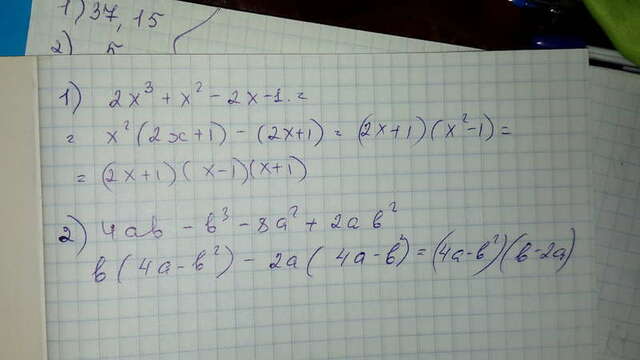 1) 37, 15
2) 5
1) 2x³ + x² - 2x - 1. =
= x² (2x + 1) - (2x + 1) = (2x + 1) (x² - 1) =
= (2x + 1) (x - 1)(x + 1)
2) 4ab - b³ - 8a² + 2ab²
b (4a - b²) - 2a (4a - b²) = (4a - b²)(b - 2a)